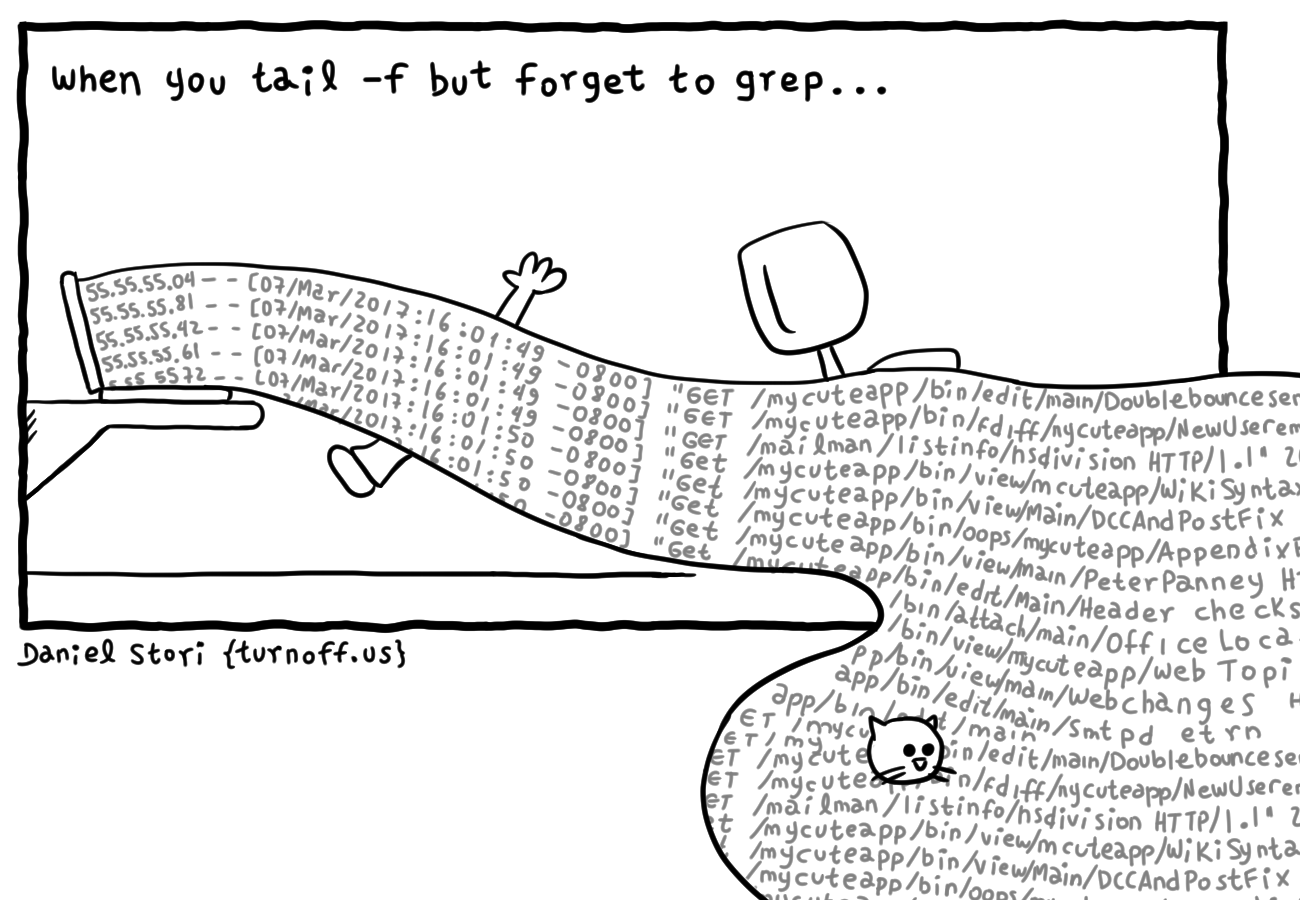 when you tail -f but forget to grep...
55.55.55.04 - - [07/Mar/2017:16:01:49 -0800] "GET /mycuteapp/bin/edit/main/Doublebounceser
55.55.55.81 - - [07/Mar/2017:16:01:49 -0800] "GET /mycuteapp/bin/rdiff/nycuteapp/NewUserem
55.55.55.42 - - [07/Mar/2017:16:01:49 -0800] "GET /mailman/listinfo/hsdivision HTTP/1.1" 2
55.55.55.61 - - [07/Mar/2017:16:01:49 -0800] "Get /mycuteapp/bin/view/mcuteapp/WikiSyntax
55 5572 - - [07/Mar/2017:16:01:50 -0800] "Get /mycuteapp/bin/view/Main/DCCAndPostFix
/mar/2017:16:01:50 -0800] "Get /mycuteapp/bin/oops/mycuteapp/Appendix
16:01:50 -0800] "Get /mycuteapp/bin/view/main/PeterPanney H
50 -0800] "Get /mycuteapp/bin/edit/Main/Header checks
/bin/attach/main/Office Loca
/bin/view/mycuteapp/web Topi
pp/bin/view/main/Webchanges
app/bin/edit/main/Smtpd etrn
app/bin/edit/main
ET /mycu
ET /my
ET /mycute bin/edit/main/Doublebounceser
ET /mycuteapp in/rdiff/nycuteapp/NewUserem
ET /mailman/listinfo/hsdivision HTTP/1.1" 2
t /mycuteapp/bin/view/mcuteapp/WikiSynta
/mycuteapp/bin/view/Main/DCCAndPostFix
/mycuteapp/bin/oops/
Daniel Stori {turnoff.us}